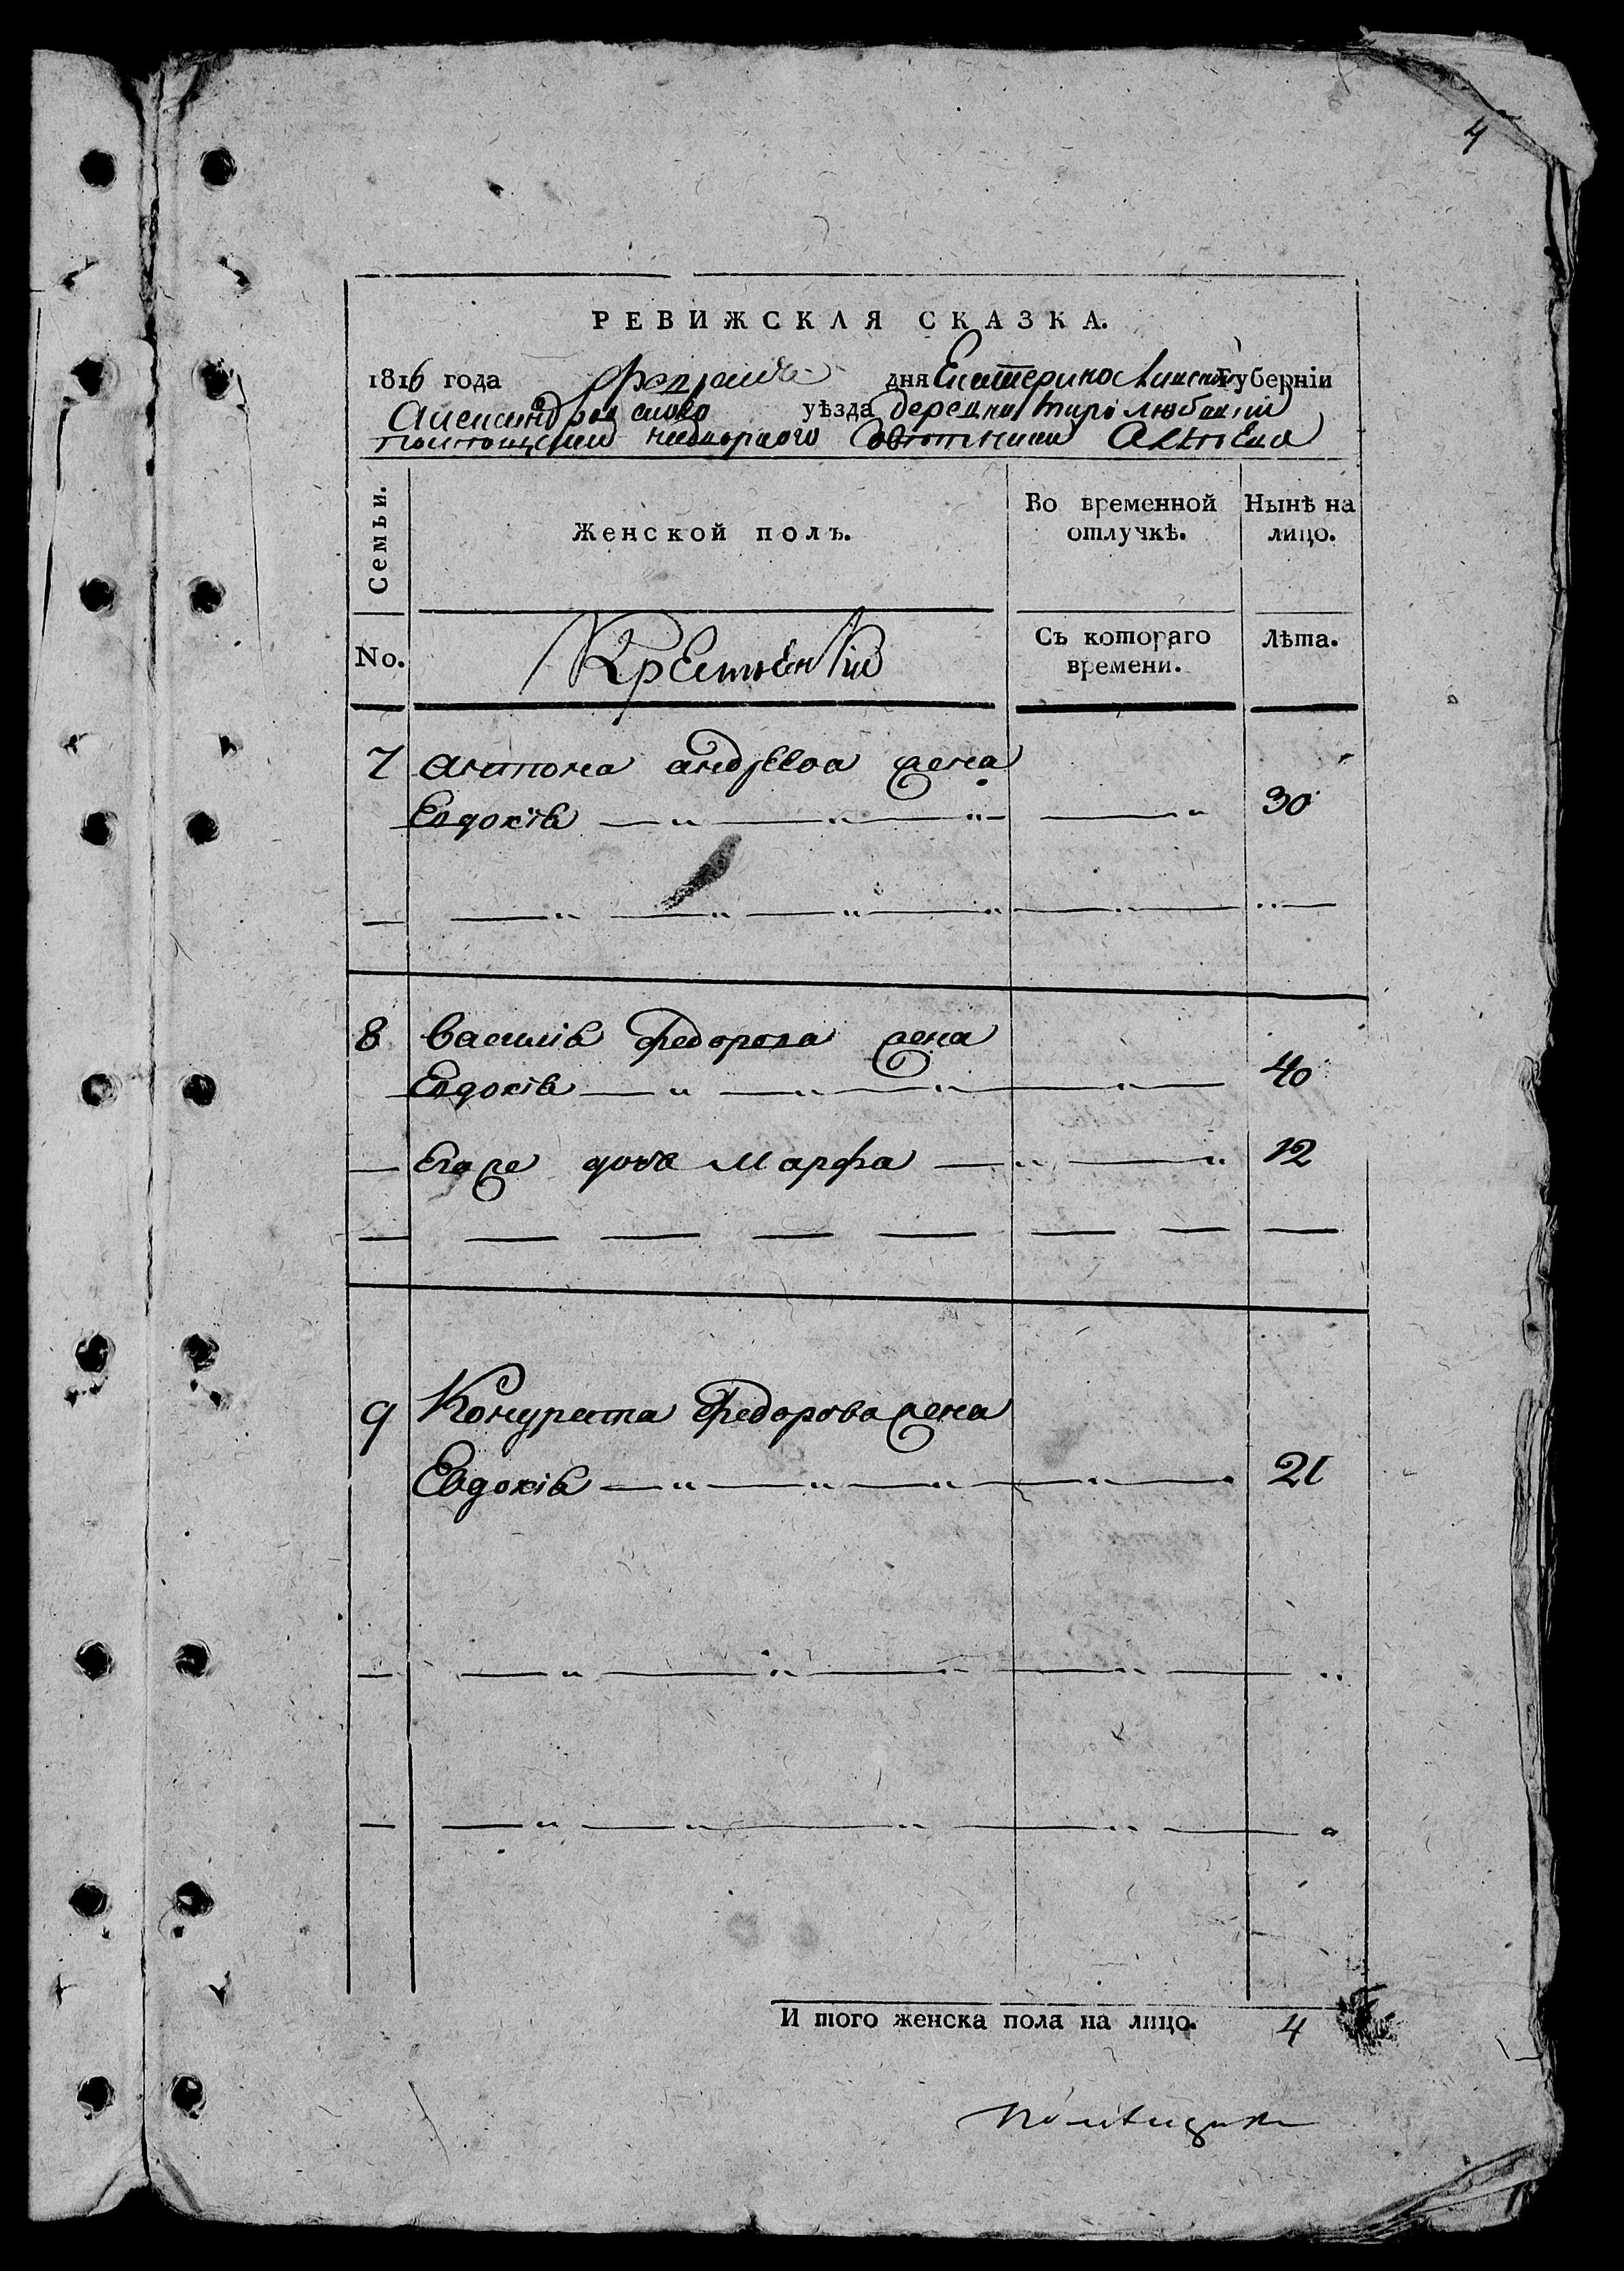 4
РЕВИЖСКАЯ СКАЗКА.
1816 года февраля дня Екатеринославской Губерніи
Александровскова уѣзда деревни миролюбовки
надворнаго Советника
Семьи. Женской полъ. Во временной отлучкѣ. Нынѣ на лицо.
No. Крестьянки Съ котораго времени. Лѣта.
7 антона андреева жена
Евдокія 30
8 василія федорова жена
Евдокія 40
Его же дочь Марфа 12
9 Кондрата Федорова жена
Евдокія 21
И того женска пола на лицо. 4